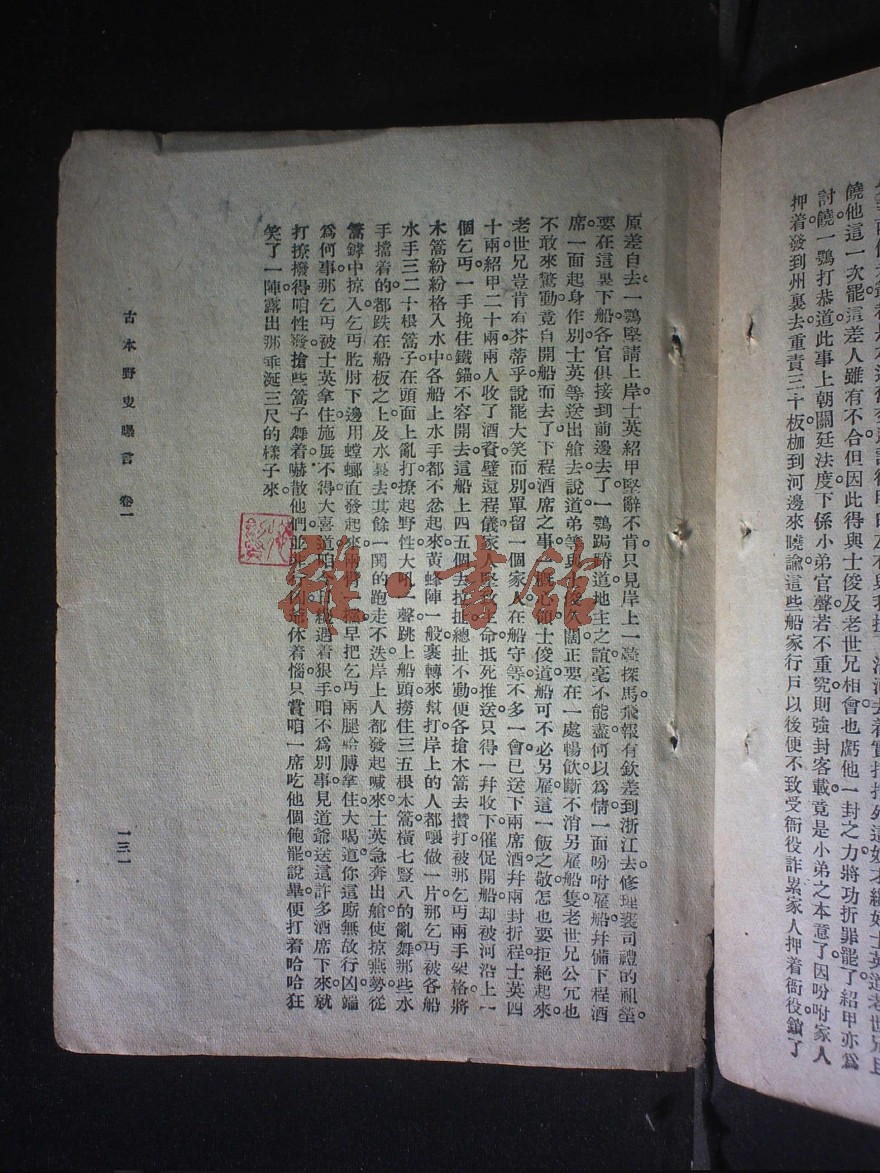 討饒一鶚打恭道此事上朝關廷法度下係小弟官聲若不重究則強封客載竟是小弟之本意了因吩咐家人
押着發到州裏去重責三十板枷到河邊來曉諭這些船家行戶以後使不致受衙役詐累家人押着衙役鎖了
原差自去一鶚堅請上岸士英紹甲堅辭不肯只見岸上一
探馬飛報有欽差到浙江去修理裴司禮的祖塋
要在這裏下船各官俱接到前邊去了一鶚跼蹐道地主之誼毫不能盡何以爲情一面吩咐雇船并備下程酒
席一面起身作別士英等送出艙去說道弟等與
闊正要在一處暢飲斷不消另雇船隻老世兄公冗也
不敢來驚動竟自開船而去了下程酒席之事
士俊道船可不必另雇這一飯之敬怎也要拒絕起來
老世兄豈肯有芥蒂乎說罷大笑而別單留一個家人在船守等不多一會已送下兩席酒幷兩封折程士英四
十兩紹甲二十兩兩人收了酒資璧還程儀家人堅
命抵死推送只得一幷收下催促開船却被河沿上一
個乞丐一手挽住鐵錨不容開去這船上四五個去拉扯總扯不動便各搶木篙去攢打被那乞丐兩手架格將
木篙紛紛格入水中各船上水手都不忿起來黃蜂陣一般裹轉來幫打岸上的人都嚷做一片那乞丐被各船
水手三二十根篙子在頭面上亂打撩起野性大吼一聲跳上船頭撈住三五根木篙橫七豎八的亂舞那些水
手擋着的都跌在船板之上及水裏去其餘一閧的跑走不迭岸上人都發起喊來士英急奔出艙使掠燕勢從
篙鋒中掠入乞丐肐肘下邊用螳螂直發起來兩
早把乞丐兩腿哈膊拿住大喝道你這廝無故行凶端
爲何事那乞丐被士英拿住施展不得大喜道咱
遇着狠手咱不爲別事見道爺送這許多酒席下來就
打撩撥得咱性發搶些篙子舞着嚇散他們並
休着惱只賞咱一席吃他個飽罷說畢便打着哈哈狂
笑了一陣露出那垂涎三尺的樣子來
古本野叟曝言 卷一
一三一
雅·書館